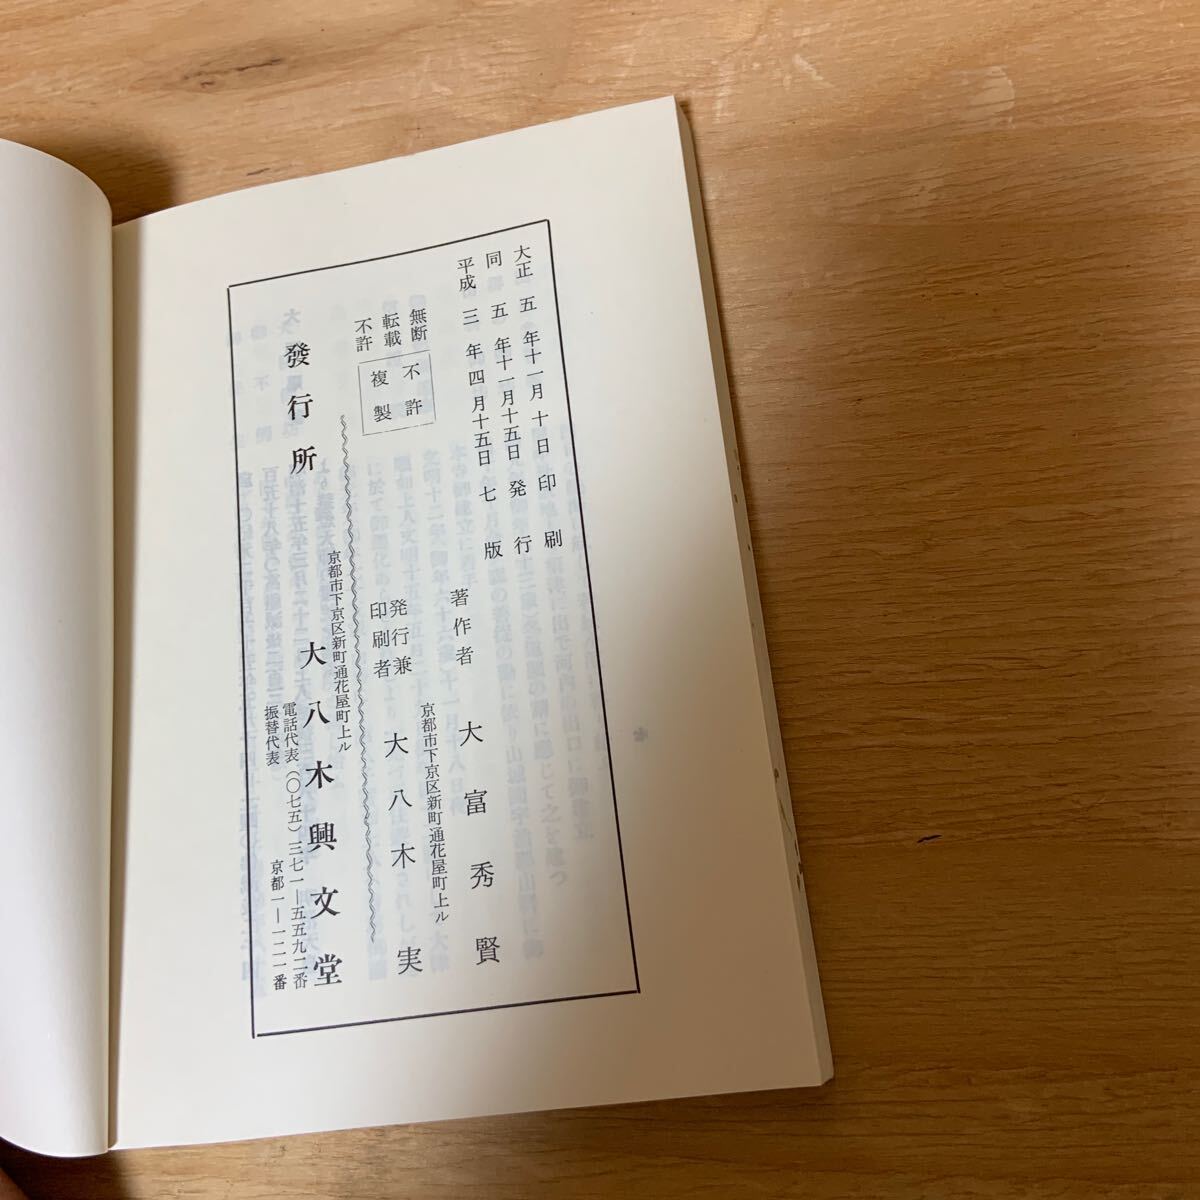 大正五年十一月十日印刷
同五年十一月十五日発行
平成三年四月十五日七版
無断
転載
不許
不許
複製
著作者 大富秀賢
京都市下京区新町通花屋町上ル
発行兼
印刷者 大八木実
京都市下京区新町通花屋町上ル
發行所 大八木興文堂
電話代表(〇七五)三七一―五五九二番
振替代表 京都一―一二一番